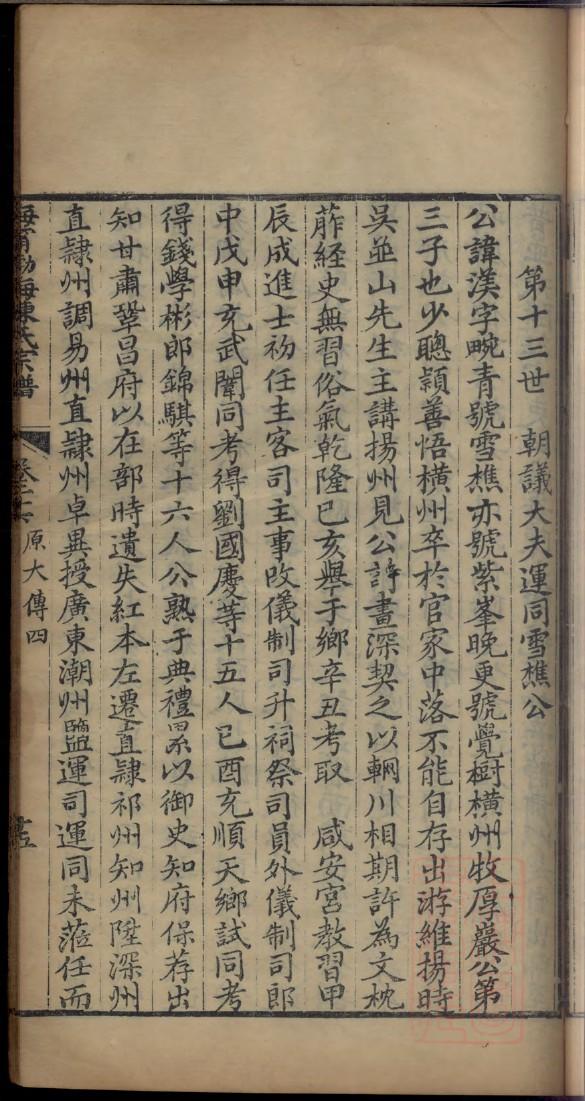 第十三世　朝議大夫運同雪樵公
公諱漢字畹青號雪樵亦號紫峯晚更號覺樹橫州牧厚巖公第
三子也少聰穎善悟橫州卒於官家中落不能自存出游維揚時
吳並山先生主講揚州見公詩畫深契之以輞川相期許為文枕
葄経史無習俗氣乾隆己亥舉于鄉辛丑考取　咸安宮教習甲
辰成進士初任主客司主事改儀制司升祠祭司員外儀制司郎
中戊申充武闈同考得劉國慶等十五人己酉充順天鄉試同考
得錢學彬郎錦騏等十六人公熟于典禮累以御史知府保荐出
知甘肅鞏昌府以在部時遺失紅本左遷直隸祁州知州陞深州
直隸州調易州直隸州卓異授廣東潮州鹽運司運同未蒞任而
海甯勃海陳氏宗譜　原大傳四